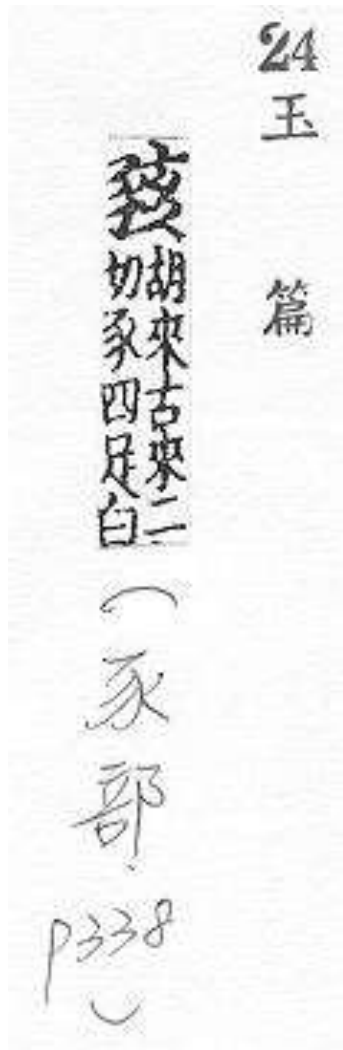 24 玉篇
豥
胡來古來二
切豕四足白
(豕部.P338)